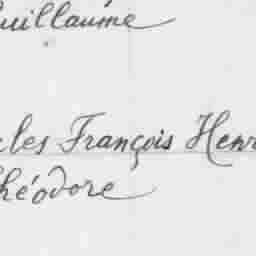 uillaume
les François Henr
héodore